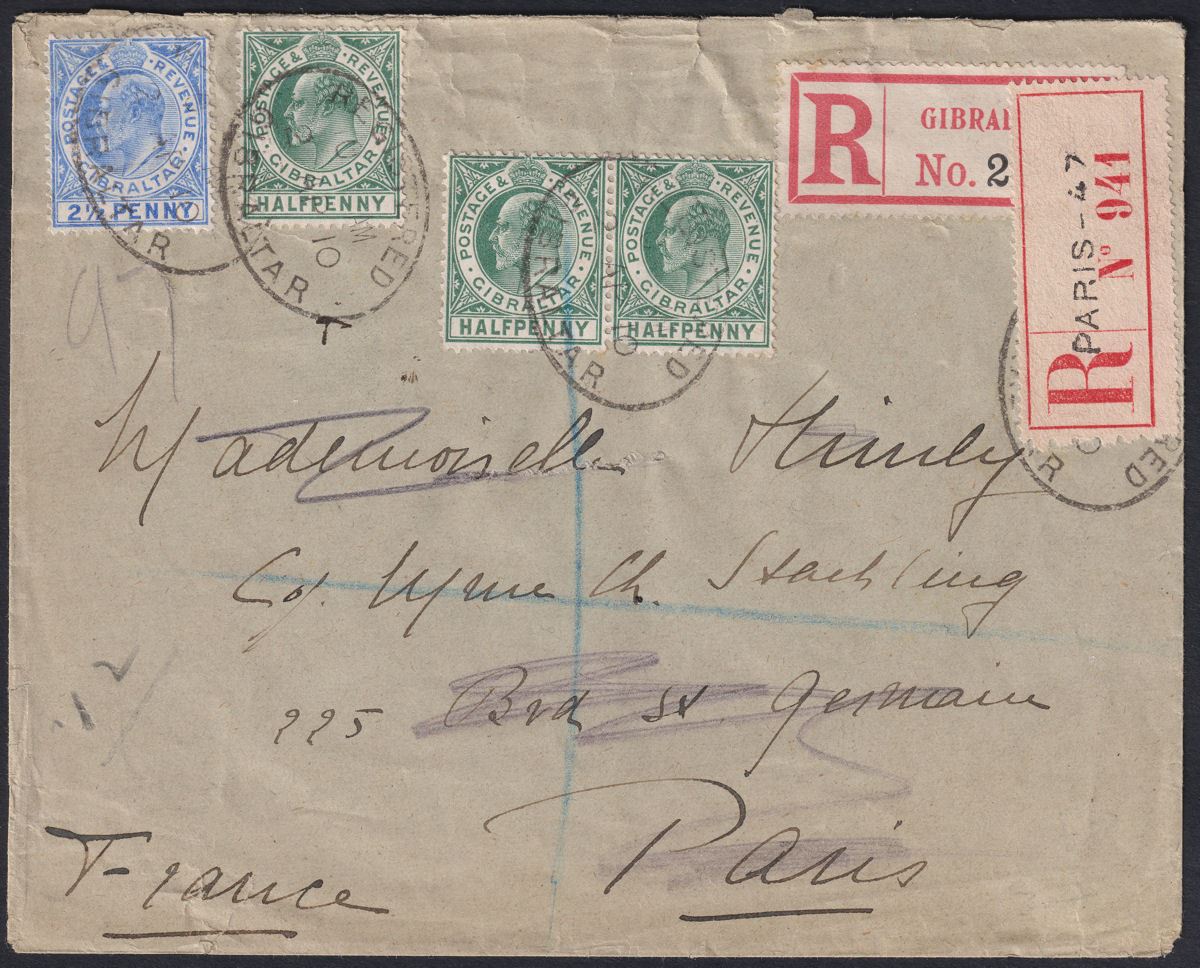 POSTAGE & REVENUE
GIBRALTAR
2½ PENNY
POSTAGE & REVENUE
GIBRALTAR
HALFPENNY
REGISTERED
GIBRALTAR
10
POSTAGE & REVENUE
GIBRALTAR
HALFPENNY
POSTAGE & REVENUE
GIBRALTAR
HALFPENNY
R
GIBRAL
No. 2
R
PARIS-47
Nº 941
97
T
Mademoiselle Himly
Co/. Mme Ch. Staehling
225 Bvd St. Germain
Paris
France